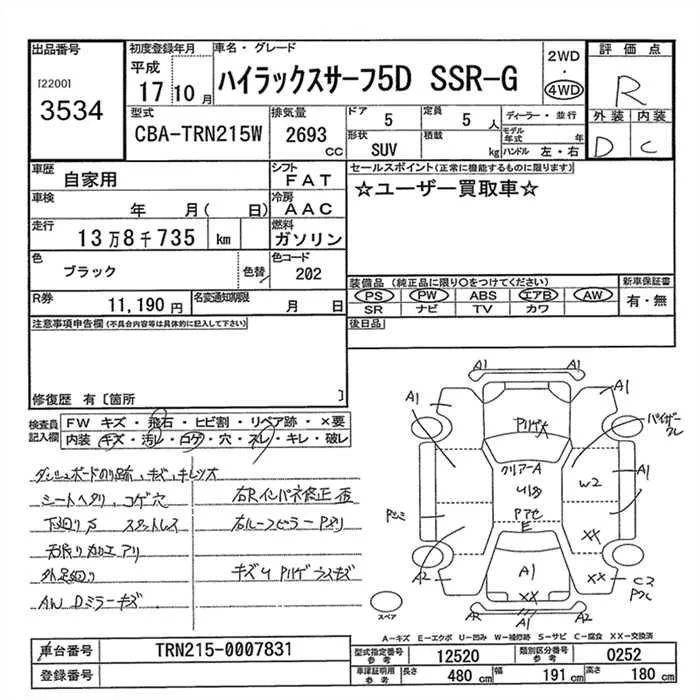 出品番号
[2200]
3534
初度登録年月
平成
17 10 月
車名・グレード
ハイラックスサーフ5D SSR-G
2WD
・
4WD
評価点
R
外装 内装
D C
型式
CBA-TRN215W
排気量
2693
CC
ドア
5
定員
5 人
形状
SUV
積載
kg
ディーラー・並行
モデル年式 年
ハンドル 左・右
車歴
自家用
シフト
FAT
車検
年 月( 日)
冷房
AAC
走行
13万8千735 km
燃料
ガソリン
色
ブラック
色替
色コード
202
R券
11,190 円
名変通知期限
月 日
セールスポイント(正常に機能するものに限ります)
☆ユーザー買取車☆
装備品 (純正品に限り〇をつけてください)
PS PW ABS エアB AW
SR ナビ TV カワ
新車保証書
有・無
後日品
注意事項申告欄(不具合内容等は具体的に記入して下さい)
修復歴 有 [箇所 ]
検査員
記入欄
FW キズ・飛石・ヒビ割・リペア跡・×要
内装 キズ・汚レ・コゲ・穴・スレ・キレ・破レ
シートヘタリ、コゲ穴
右Rインパネ修正 歪
下廻りサ スタットレス
AW Dミラーキズ
A1
A1
A1
A1
クリアーA
W2
A1
A1
XX
XX
XX
A2
A2
A1
A1
E
スペア
A-キズ E-エクボ U-凹み W-補修跡 S-サビ C-腐食 XX-交換済
車台番号
TRN215-0007831
登録番号
型式指定番号
参考
12520
類別区分番号
参考
0252
車庫証明用
参考
長さ 480 cm
幅 191 cm
高さ 180 cm